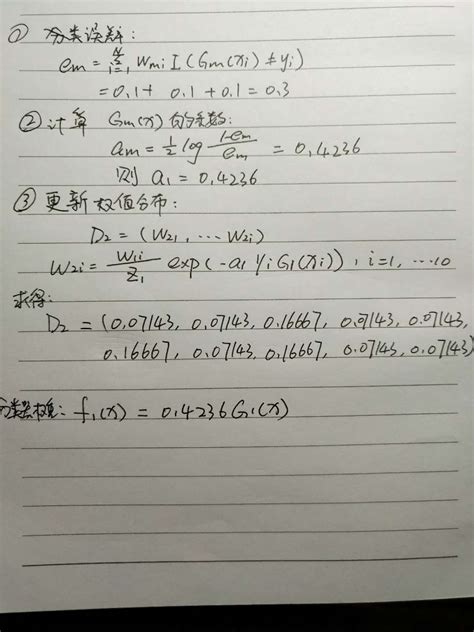 ① 分类误差:
em = Σ_{i=1}^{N} Wmi I (Gm(xi) ≠ yi)
= 0.1 + 0.1 + 0.1 = 0.3
② 计算 Gm(x) 的系数:
am = 1/2 log (1-em)/em = 0.4236
则 a1 = 0.4236
③ 更新权值分布:
D2 = (W21, ... W2i)
W2i = W1i/Z1 exp(-a1 yi G1(xi)), i=1, ...10
求得:
D2 = (0.07143, 0.07143, 0.16667, 0.07143, 0.07143,
0.16667, 0.07143, 0.16667, 0.07143, 0.07143)
f1(x) = 0.4236G1(x)